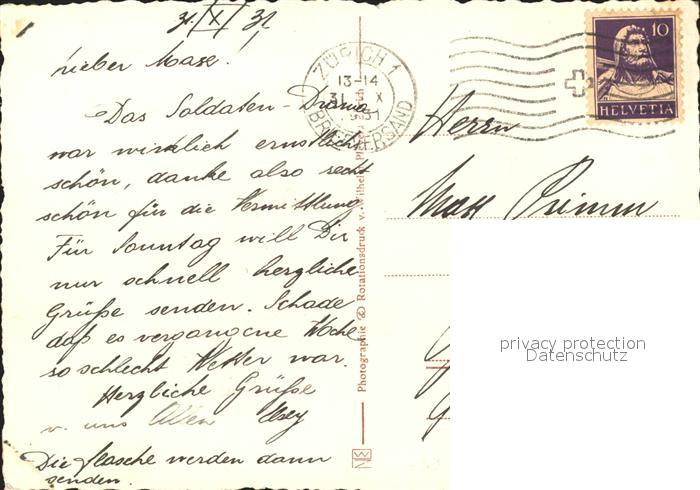 31. X 31
Lieber Maxe!
Das Soldaten-Drama
war wirklich ernstlich
schön, danke also recht
schön für die Vermittlung
Für Sonntag will Dir
nur schnell herzliche
Grüße senden. Schade
daß es vergangene Woche
so schlecht Wetter war.
Herzliche Grüße
v. uns Allen
Die flasche werden dann
senden.
Photographie & Rotationsdruck v. Wilhelm
ZÜRICH 1
13-14
31. X
1931
BRIEFVERSAND
10
HELVETIA
Herrn
Max
privacy protection
Datenschutz